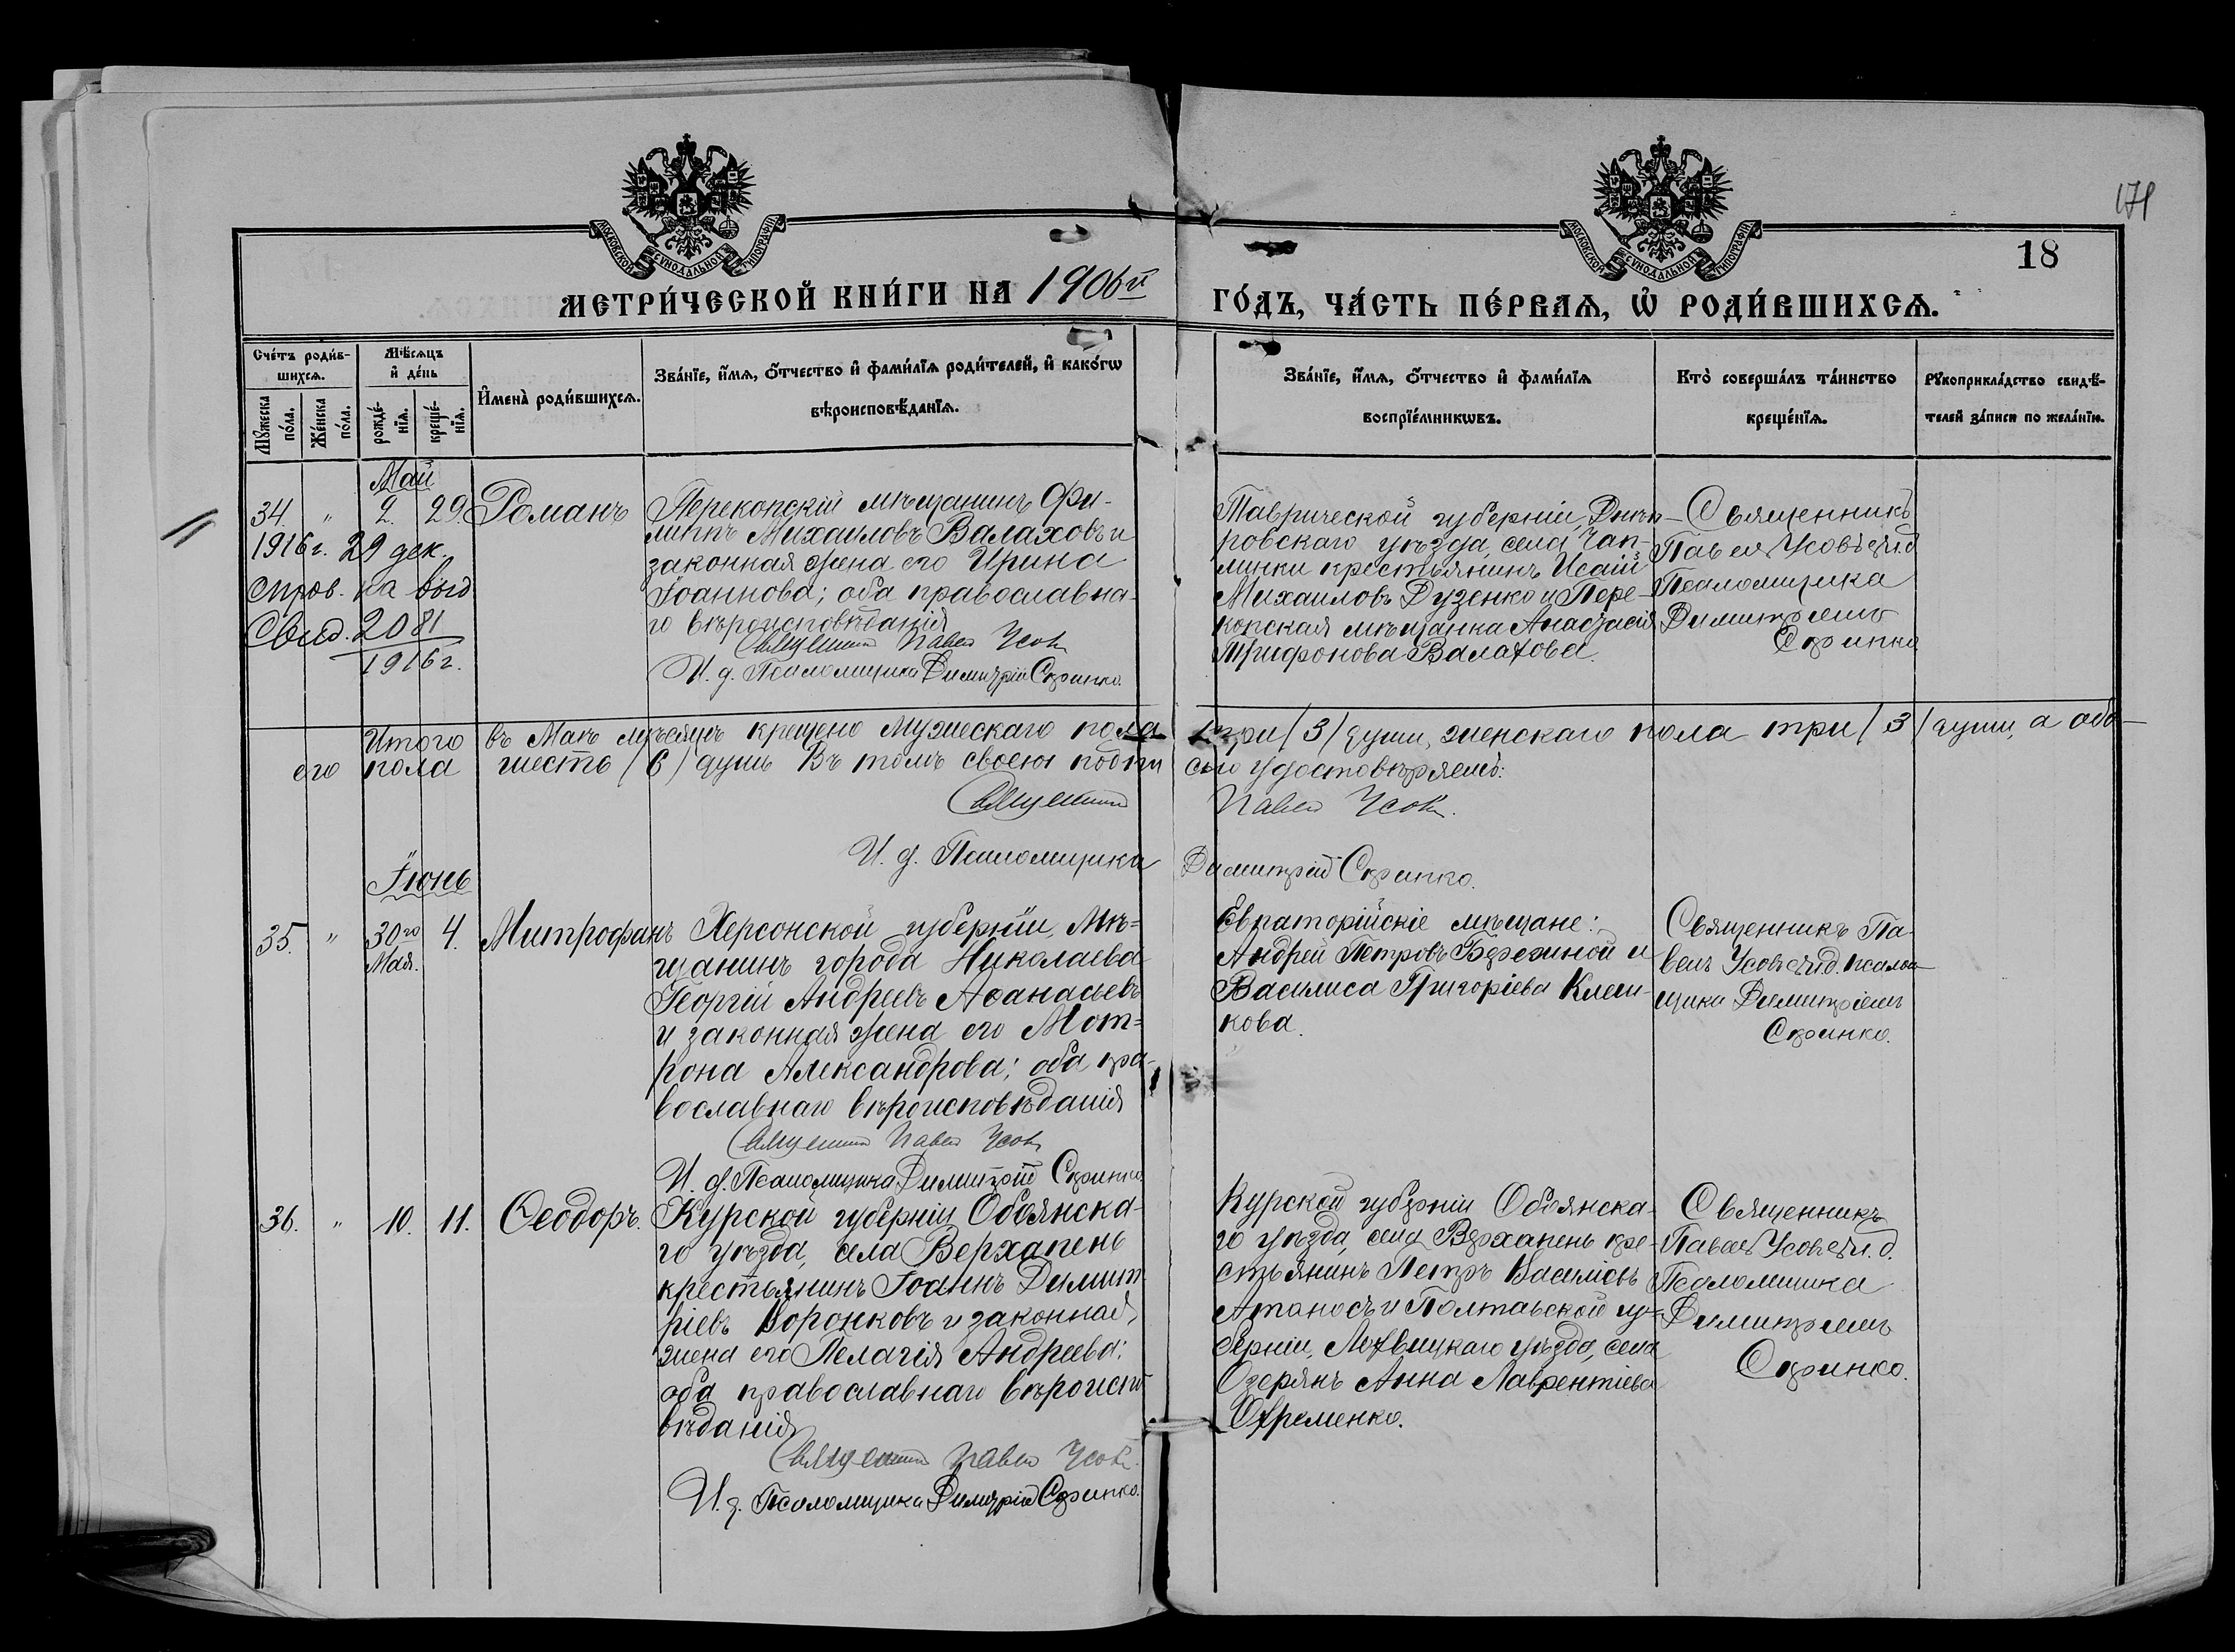 171
18
МОСКОВСКОЙ СѴНОДАЛЬНОЙ ТИПОГРАФІИ
МОСКОВСКОЙ СѴНОДАЛЬНОЙ ТИПОГРАФІИ
МЕТРИ́ЧЕСКОЙ КНИ́ГИ НА 1906й
ГО́ДЪ, ЧА́СТЬ ПЕ́РВАѦ, Ѡ РОДИ́ВШИХСѦ.
Сче́тъ роди́в-
шихсѧ.
Мꙋ́жеска
по́ла.
Же́нска
по́ла.
Мѣ́сѧцъ
и҆ де́нь
рожде́-
нїѧ.
креще́-
нїѧ.
И҆мена̀ роди́вшихсѧ.
Зва́нїе, и҆́мѧ, ѻ҆́тчество и҆ фами́лїѧ роди́телей, и҆ како́гѡ
вѣроисповѣ́данїѧ.
Зва́нїе, и҆́мѧ, ѻ҆́тчество и҆ фами́лїѧ
воспрїе́мникѡвъ.
Кто̀ соверша́лъ та́инство
креще́нїѧ.
Рꙋкоприкла́дство свидѣ́-
телей за́писи по жела́нїю.
Май
34. " 2. 29. Романъ
1916 г. 29 дек.
спров. на выд
Свид. 2081
1916 г.
Перекопскій мѣщанинъ Фи-
липпъ Михаиловъ Валаховъ и
законная жена его Ирина
Іоаннова; оба православна-
го вѣроисповѣданія
Священникъ Павелъ Усовъ
И. д. Псаломщика Димитрій Скрипко.
Таврической губерніи, Днѣп-
ровскаго уѣзда, села Чап-
линки крестьянинъ Исаій
Михаиловъ Дузенко и Пере-
копская мѣщанка Анастасія
Трифонова Валахова.
Священникъ
Павелъ Усовъ съ и.д.
Псаломщика
Димитріемъ
Скрипко
Итого въ Маѣ мѣсяцѣ крещено мужескаго пола три /3/ души, женскаго пола три /3/ души, а обо-
его пола шесть /6/ душъ Въ томъ своею подпи сью удостовѣряемъ:
Священникъ Павелъ Усовъ.
И. д. Псаломщика Димитрій Скрипко.
Іюнь
35. " 30го 4. Митрофанъ
Мая.
Херсонской губерніи, мѣ-
щанинъ города Николаева
Георгій Андреевъ Аѳанасьевъ
и законная жена его Мот-
рона Александрова; оба пра-
вославнаго вѣроисповѣданія
Священникъ Павелъ Усовъ
И. д. Псаломщика Димитрій Скрипко.
Евпаторійскіе мѣщане:
Андрей Петровъ Бережной и
Василиса Григоріева Клеш-
кова.
Священникъ Па-
велъ Усовъ съ и.д. псалом-
щика Димитріемъ
Скрипко.
36. " 10. 11. Ѳеодоръ.
Курской губерніи Обоянска-
го уѣзда, села Верхапень
крестьянинъ Іоаннъ Димит-
ріевъ Воронковъ и законная
жена его Пелагія Андреева;
оба православнаго вѣроиспо-
вѣданія
Священникъ Павелъ Усовъ.
И. д. Псаломщика Димитрій Скрипко.
Курской губерніи Обоянска-
го уѣзда, села Верхапень кре-
стьянинъ Петръ Василіевъ
и Полтавской гу-
берніи, Лохвицкаго уѣзда, села
Озерянъ Анна Лаврентіева
Охременко.
Священникъ
Павелъ Усовъ съ и. д.
Псаломщика
Димитріемъ
Скрипко.